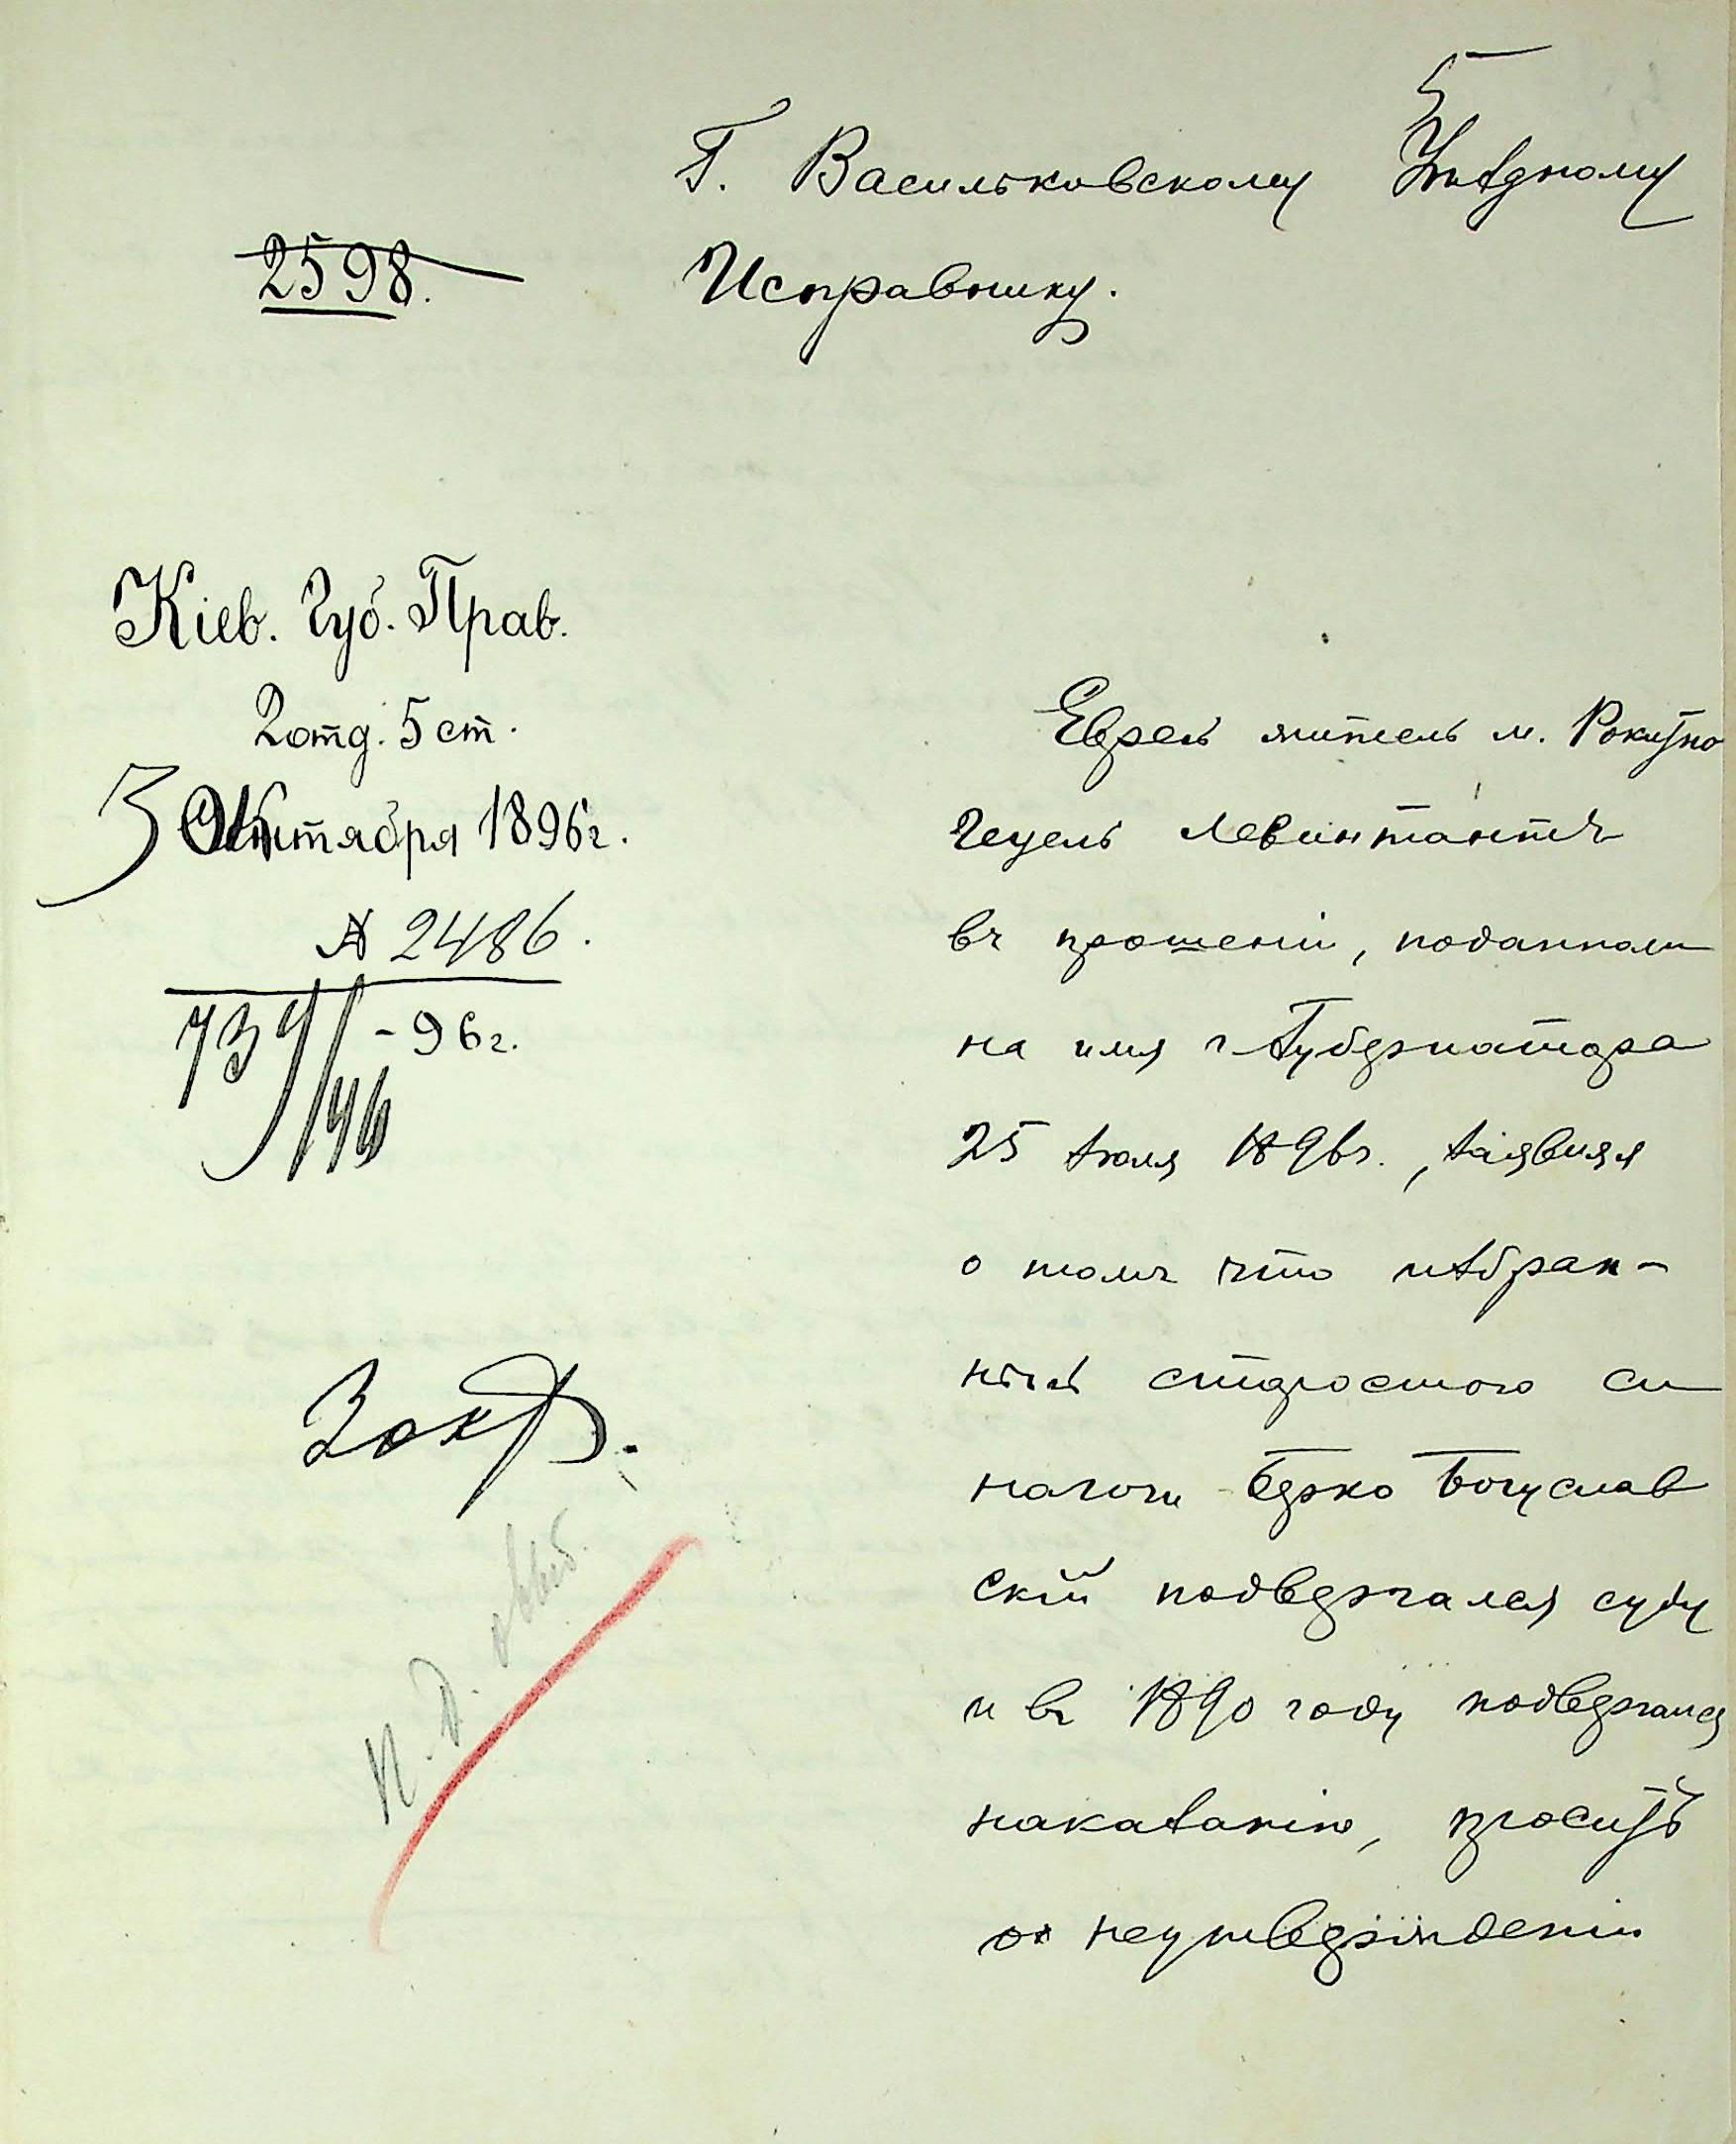 5
Г. Васильковскому Уѣздному
2598.
Исправнику.
Кіев. Губ. Прав.
2 отд. 5 ст.
3 Октября 1896 г.
№ 2486.
739/146 - 96 г.
Еврей житель м. Рокитно
Гецель Левинтантъ
въ прошеніи, поданном
на имя г. Губернатора
25 Іюля 1896 г., заявляя
о томъ что избран-
ный старостою си
нагоги Берко Богуслав
скій подвергался суду
и въ 1890 году подвергался
наказанію, проситъ
о неутвержденіи